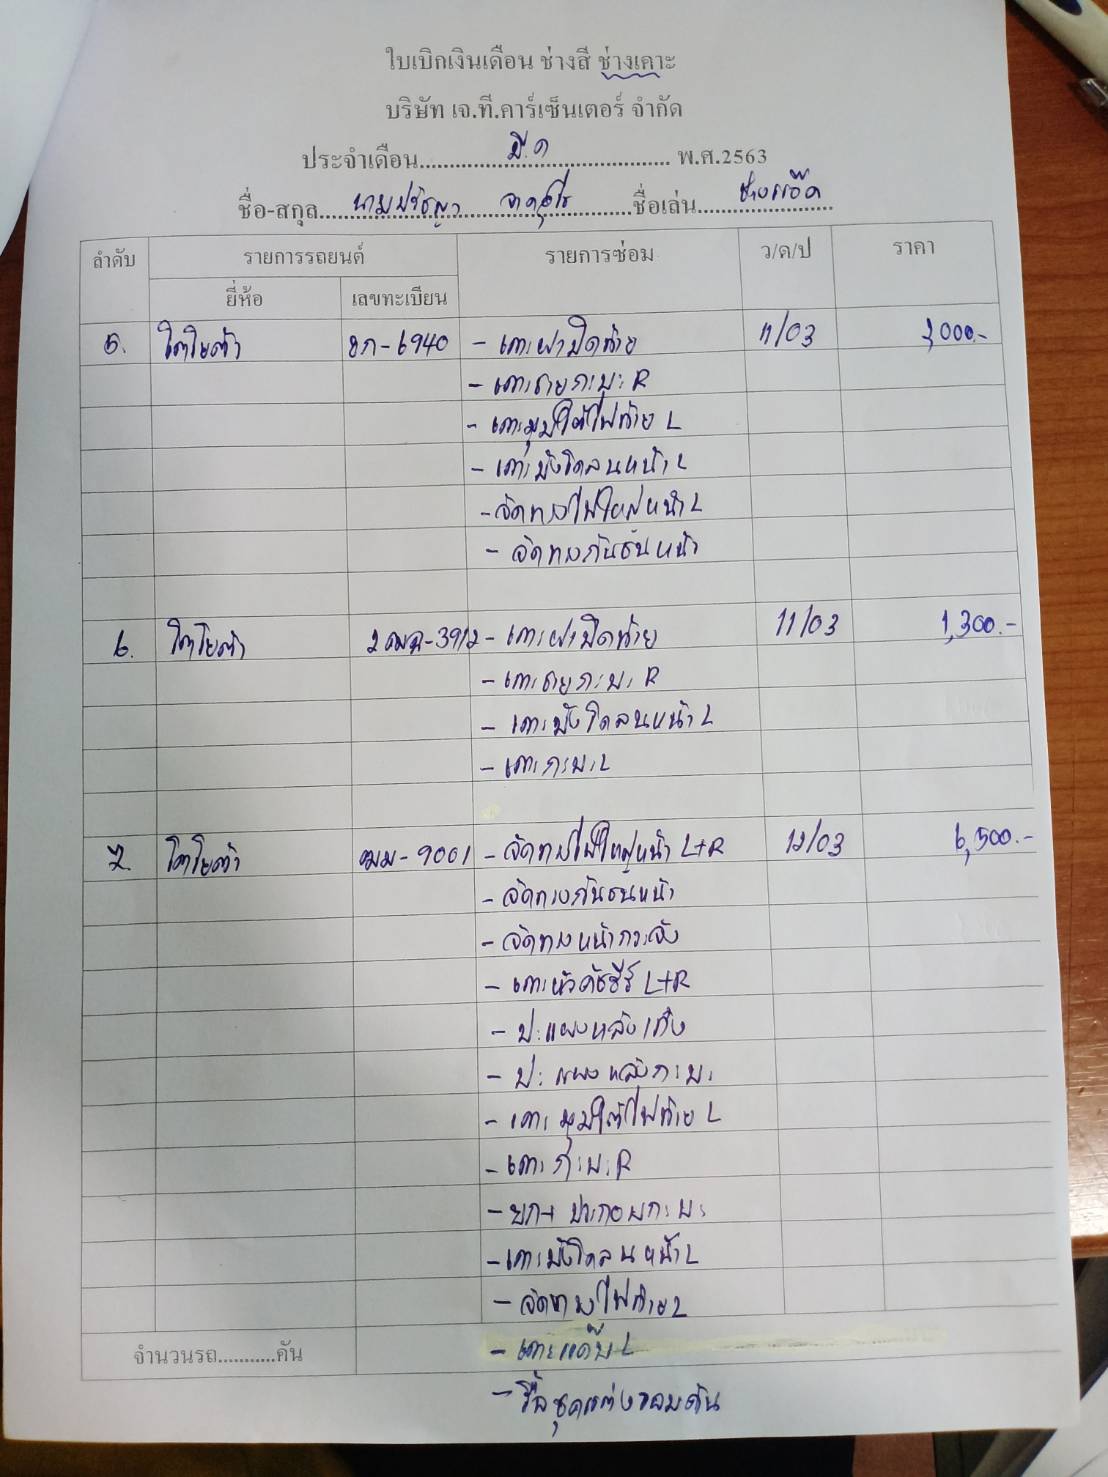 ใบเบิกเงินเดือน ช่างสี ช่างเคาะ
บริษัท เจ.ที.คาร์เซ็นเตอร์ จำกัด
ประจำเดือน มี.ค พ.ศ.2563
ชื่อ-สกุล ชื่อเล่น
ลำดับ รายการรถยนต์ รายการซ่อม ว/ด/ป ราคา
ยี่ห้อ เลขทะเบียน
5. โตโยต้า ยก-6940 - เคาะฝาปิดท้าย 11/03 3,000.-
- เคาะชายกะบะ R
- เคาะมุมใต้ไฟท้าย L
- เคาะบังโคลนหน้า L
- จัดทางไฟใหญ่หน้า L
- จัดทางกันชนหน้า
6. โตโยต้า - เคาะฝาปิดท้าย 11/03 1,300.-
- เคาะชายกะบะ R
- เคาะบังโคลนหน้า L
- เคาะกะบะ L
7. โตโยต้า ฒม-9061 - จัดทางไฟใหญ่หน้า L+R 12/03 6,500.-
- จัดทางกันชนหน้า
- จัดทางหน้ากระจัง
- เคาะหัวคัชซีร์ L+R
- ปะแผงหลังเก๋ง
- ปะแผงหลังกะบะ
- เคาะมุมใต้ไฟท้าย L
- เคาะกะบะ R
- ยก+ประกอบกะบะ
- เคาะบังโคลนหน้า L
- จัดทางไฟท้าย L
จำนวนรถ...........คัน - เคาะแค๊บ L
- รื้อชุดแต่งรอบคัน